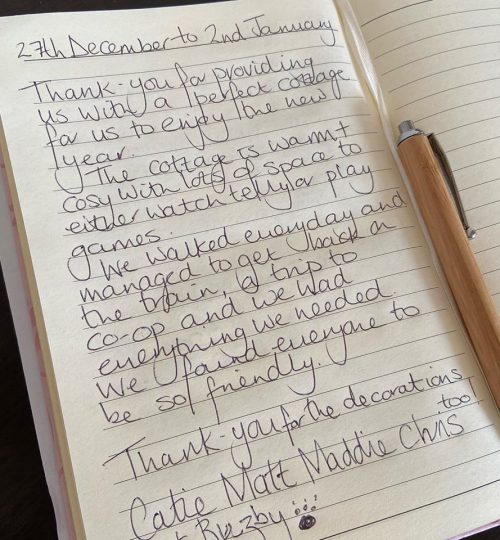 27th December to 2nd January
Thank-you for providing
us with a perfect cottage
for us to enjoy the new
year.
The cottage is warm +
cosy with lots of space to
either watch telly or play
games.
We walked everyday and
managed to get back on
the train, a trip to
co-op and we had
everything we needed.
We found everyone to
be so friendly.
Thank-you for the decorations
too!
Catie Matt Maddie Chris
+ Buzby